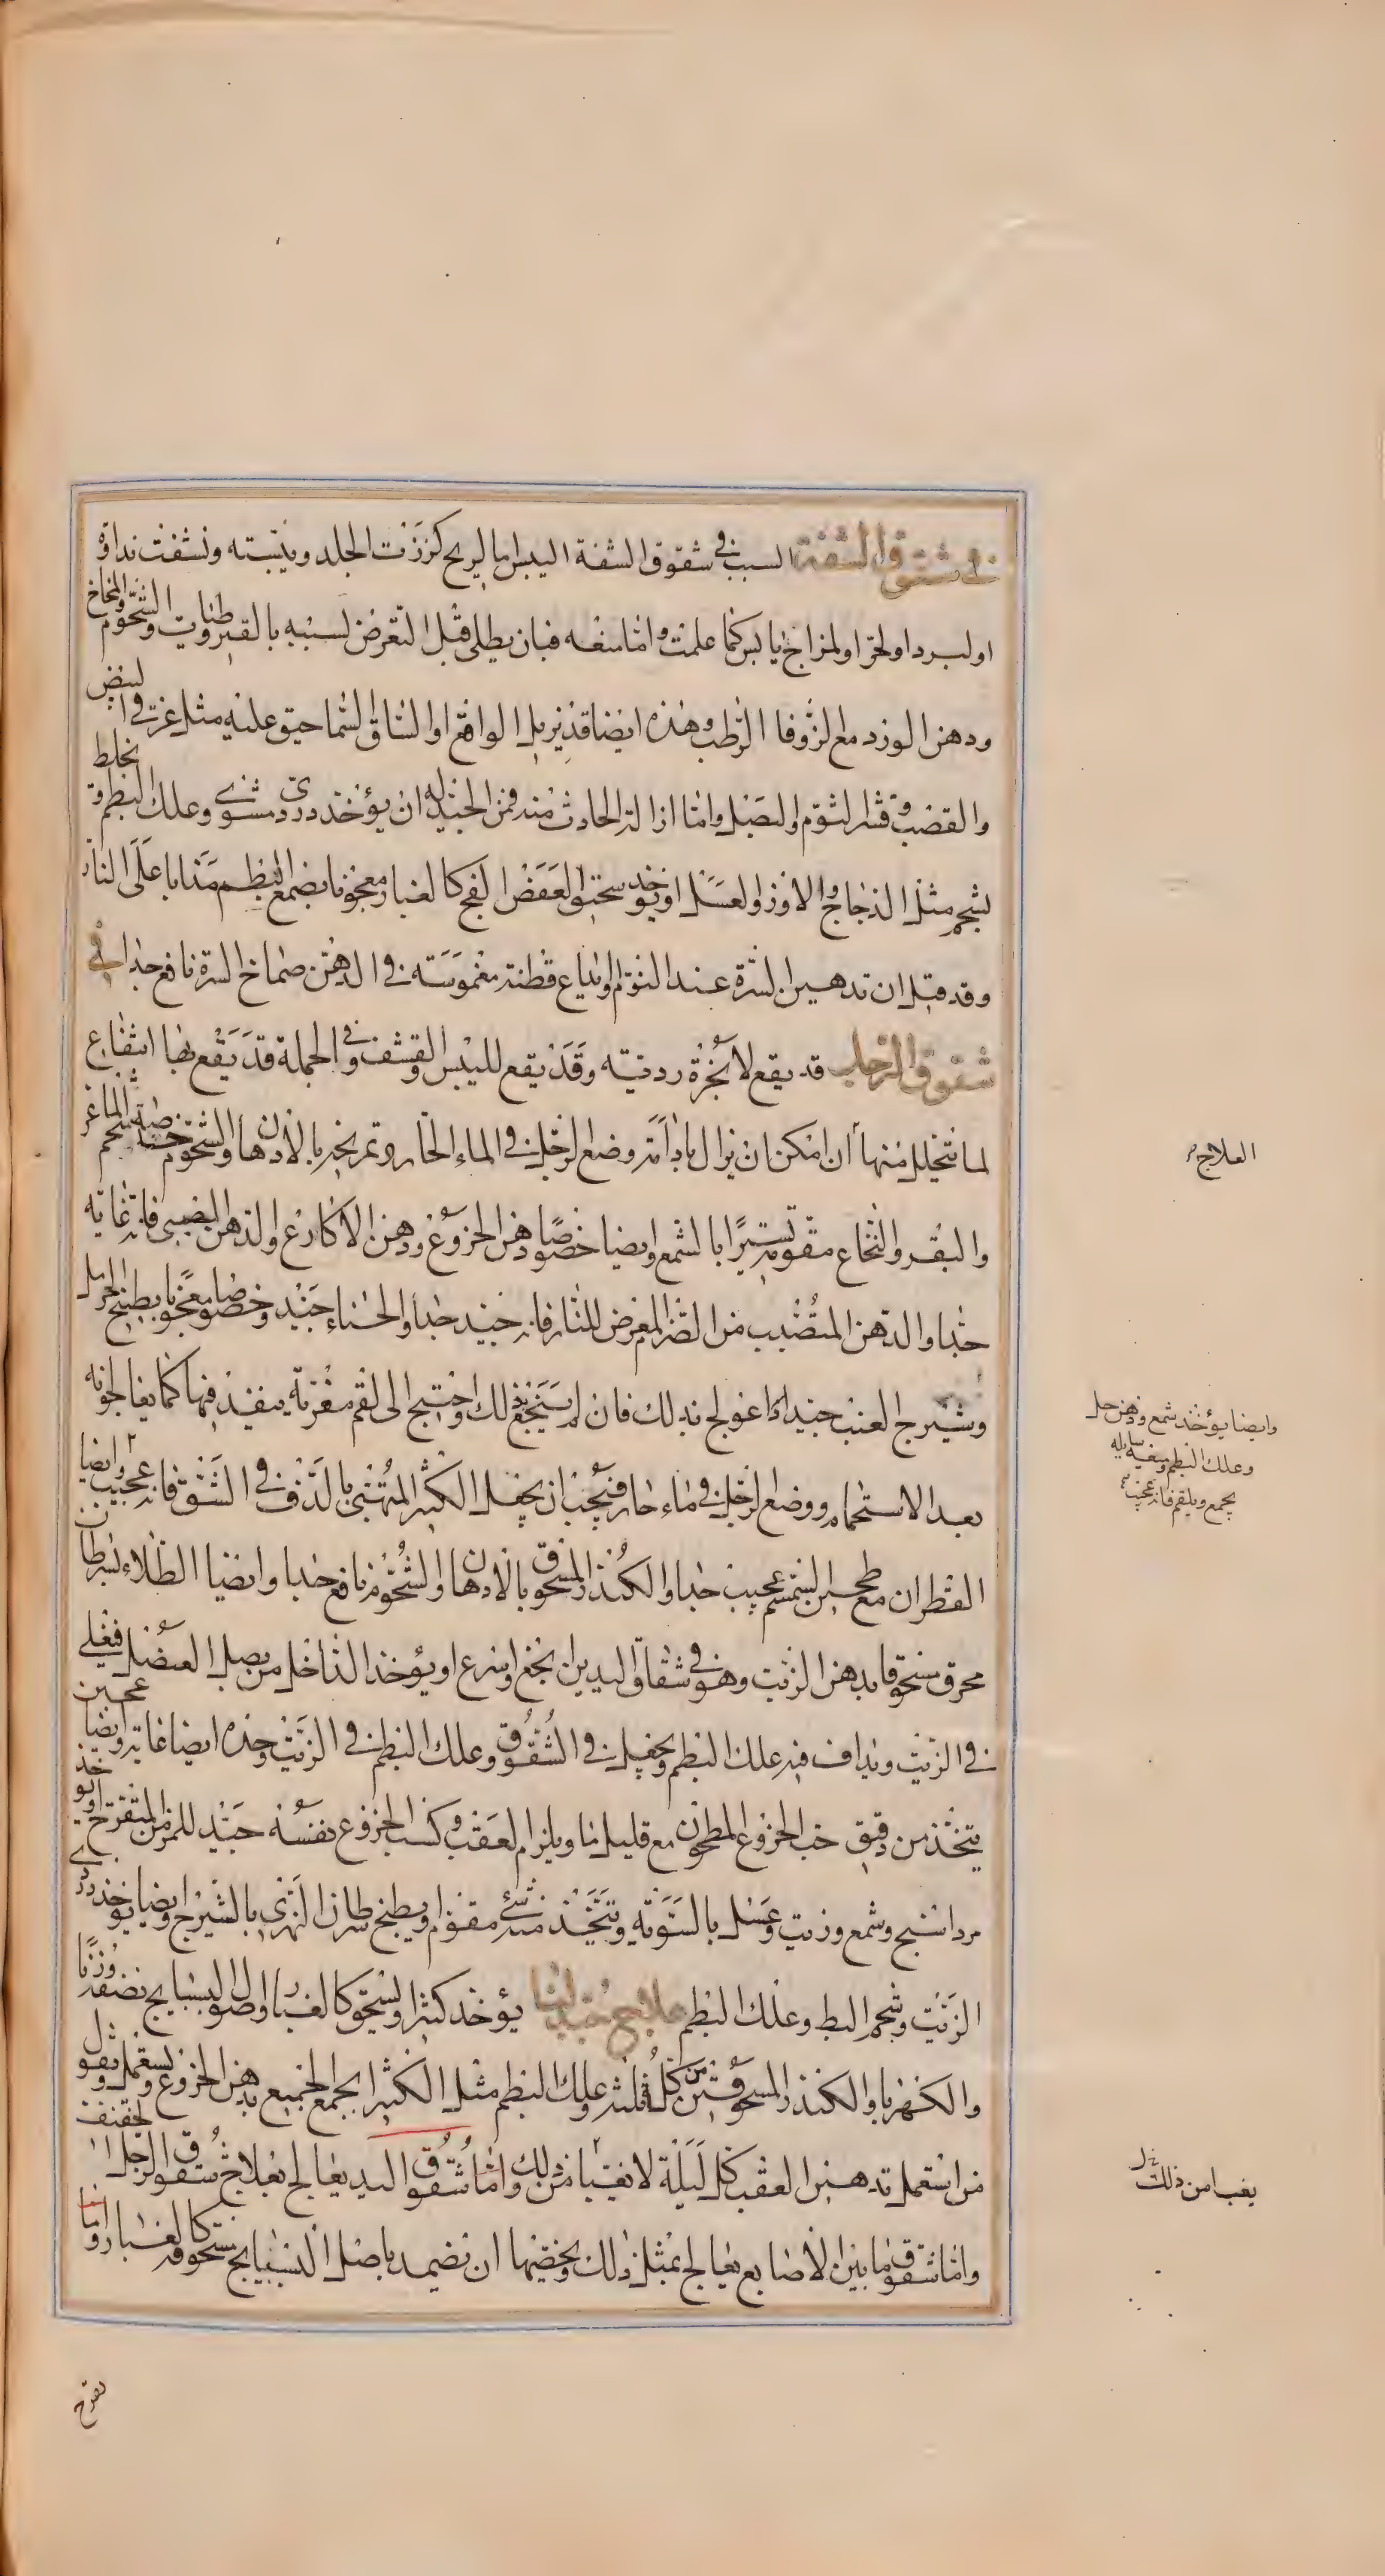 في شقوق الشفة السبب في شقوق الشفة اليبس اما لريح كززت الجلد ويبسته ونشفت نداوة
او لبرد او لحر او لمزاج يابس كما علمت واما منعه فبان يطلى قبل التعرض لسببه بالقيروطيات والشحوم والمخاخ
ودهن الورد مع الزوفا الرطب وهذه ايضا قد يزيل الواقع او الساق السماحيق عليه مثل غرقئ البيض
والقصب وقشر الثوم او البصل واما ازالة الحادث منه فمن الجيد له ان يؤخذ دردي مشوي وعلك البطم وقد يخلط
بشحم مثل الدجاج والاوز والعسل او يؤخذ سحيق العفص الفج كالغبار معجونا بصمغ البطم مذابا على النار
وقد قيل ان تدهين السرة عند النوم او ايداع قطنة مغموسة في الدهن صماخ السرة نافع جدا في
شقوق الرجل قد يقع لابخرة رديئة وقد يقع لليبس والقشف وفي الجملة قد يقع بها انتفاع
لما يتحلل منها ان امكن ان يزال بادامة وضع الرجل في الماء الحار وتمريخه بالادهان والشحوم خاصة شحم الماعز
والبقر والنخاع مقومة يسيرا بالشمع وايضا خصوصا دهن الخروع ودهن الاكارع والدهن الصيني فانه غاية
جدا والدهن المتصبب من المعرض للنار فانه جيد جدا والحناء جيد وخصوصا معجونا بطبيخ الحرمل
وشيرج العنب جيد اذا عولج بذلك فان لم ينجع ذلك واحتيج الى لقم مغرية ينفذ فيها كما يعالجونه
بعد الاستحمام ووضع الرجل في ماء حار فيجب ان يجعل الكثير المتهيئ بالدف في الشق فانه عجيب وايضا
القطران مع طحين السمسم عجيب جدا والكندر المسحوق بالادهان والشحوم نافع جدا وايضا الطلاء بسرطان
محرق مسحوقا بدهن الزيت وهو في شقاق اليدين انجع واسرع او يؤخذ الداخل من بصل العنصل فيغلى
في الزيت ويداف فيه علك البطم ويجعل في الشقوق وعلك البطم في الزيت وحده ايضا غاية وايضا عجين
يتخذ من دقيق حب الخروع المطحون مع قليل ما ويلزم العقب وكسب الخروع نفسه جيد للمزمن المتقرح او يؤخذ
مرداسنج وشمع وزيت وعسل بالسوية ويتخذ منه شئ مقوم او يطبخ سرطان النهري بالشيرج وايضا يوخذ دردي
الزيت وشحم البط وعلك البطم علاج جيد لنا يؤخذ كثيرا ويسحق كالغبار واصول البسبايج نصفه وزنا
والكهربا والكندر المسحوقين من كل ثلثه وعلك البطم مثل الكثيرا يجمع الجميع بدهن الخروع ويستعمل ويقول
من استعمل تدهين العقب كل ليلة لا يغبها من ذلك واما شقوق اليد يعالج بعلاج شقوق الرجل الخفيف
واما شقوق ما بين الاصابع يعالج بمثل ذلك ويخصها ان تضمد باصل البسبايج مسحوقة كالغبار واما
العلاج
وايضا يؤخذ شمع ودهن حل
وعلك البطم وميعة سايلة
يجمع ويلقم فانه عجيب
يغب امن ذلك
تقرح